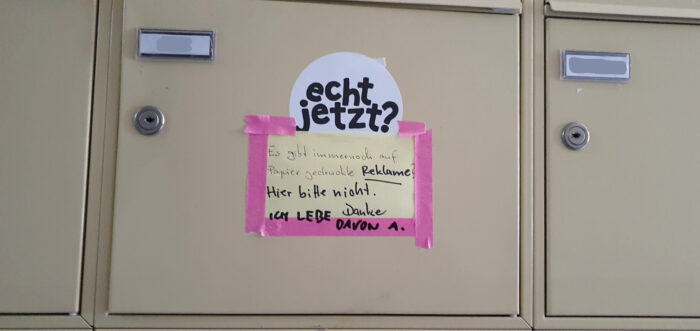 echt
jetzt?
Es gibt immernoch auf
Papier gedruckte Reklame?
Hier bitte nicht.
Danke
ICH LEBE
DAVON A.